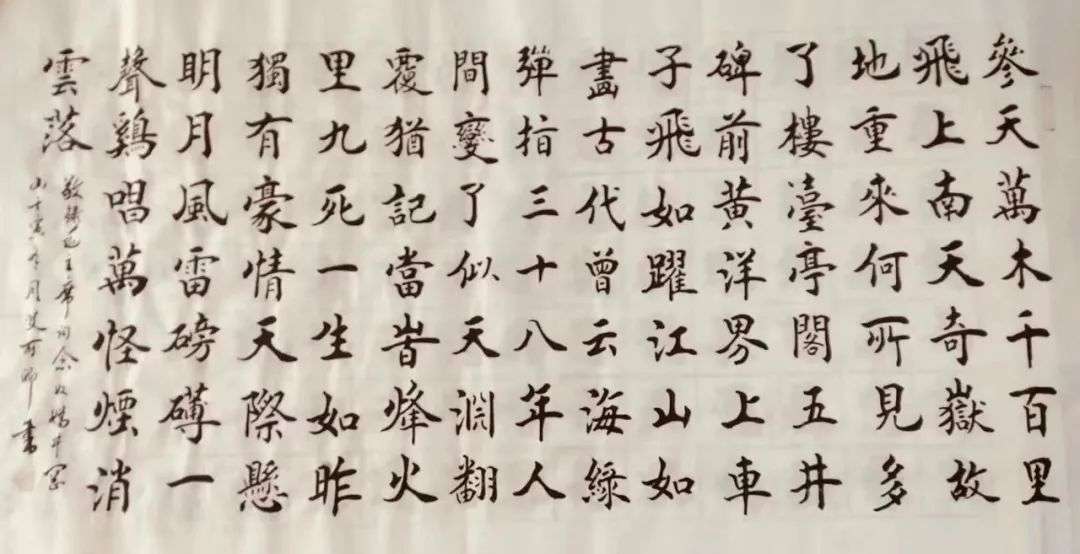 參天萬木千百里
飛上南天奇嶽故
地重來何所見多
了樓臺亭閣五井
碑前黃洋界上車
子飛如躍江山如
畫古代曾云海綠
彈指三十八年人
間變了似天淵翻
覆猶記當昔烽火
里九死一生如昨
獨有豪情天際懸
明月風雷磅礴一
聲鷄唱萬怪煙消
雲落
敬錄毛主席詞念奴嬌井岡
山 月 書